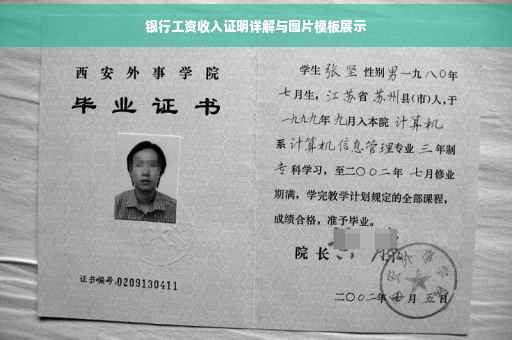 银行工资收入证明详解与图片模板展示
西安外事学院
毕业证书
证书编号:0209130411
学生 张坚 性别 男 一九八〇年
七月生，江苏省 苏州县(市)人,于
一九九九年 九月入本院 计算机
系 计算机信息管理专业 三 年制
专科学习，至二〇〇二年 七月修业
期满，学完教学计划规定的全部课程，
成绩合格，准予毕业。
院长
二〇〇二年 七月 五日